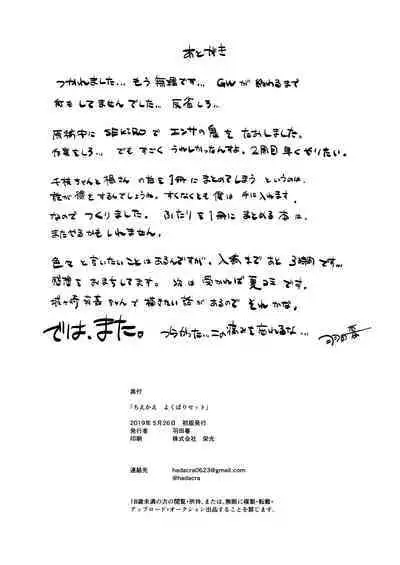 あとがき
つかれました… もう無理です… GWが終わるまで
何もしてませんでした… 反省しろ…
原稿中に SEKIROで エンサの鬼を たおしました。
作業をしろ… でも すごく うれしかったんすよ。2周目 早くやりたい。
千枝ちゃんと楓さん の話を 1冊に まとめてしまう というのは、
誰が得をするんでしょうね。すくなくとも僕は 手に入れます。
なので つくりました。 ふたりを1冊に まとめる 本は、
またやるかもしれません。
色々と言いたいことはあるんですが、入稿まで あと 3時間です…
感想を おまちしてます。 次は 受かれば 夏コミ です。
ちゃんで 描きたい 話が あるので それ かな。
では、また。 つらかった…この痛みを忘れるな…
奥付
「ちえかえ よくばりセット」
2019年5月26日 初版発行
発行者 羽田春
印刷 株式会社 栄光
連絡先 hadacra0623@gmail.com
@hadacra
18歳未満の方の閲覧・所持、または、無断に複製・転載・
アップロード・オークション出品することを禁じます。